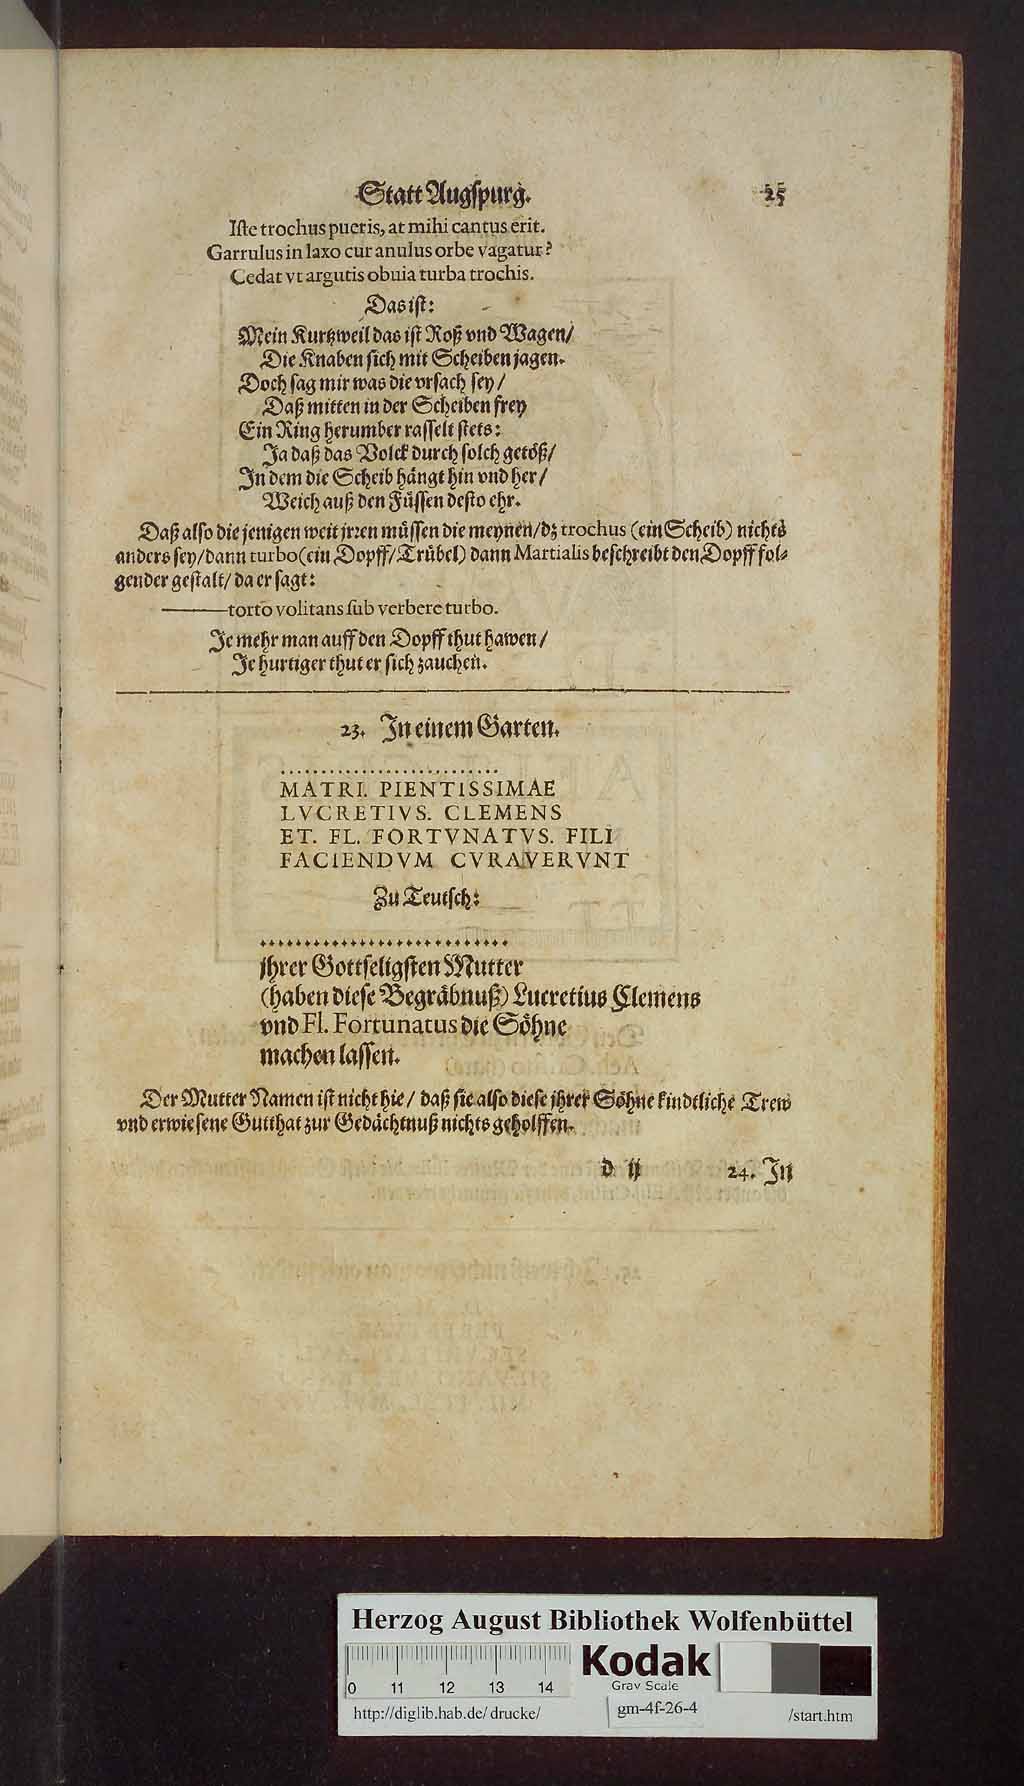 Statt Augspurg. 25
Iste trochus pueris, at mihi cantus erit.
Garrulus in laxo cur anulus orbe vagatur?
Cedat vt argutis obuia turba trochis.
Das ist:
Mein Kurtzweil das ist Roß vnd Wagen/
Die Knaben sich mit Scheiben jagen.
Doch sag mir was die vrsach sey/
Daß mitten in der Scheiben frey
Ein Ring herumber rasselt stets:
Ja daß das Volck durch solch getöß/
In dem die Scheib hängt hin vnd her/
Weich auß den Füssen desto ehr.
Daß also die jenigen weit jrren müssen die meynen/dz trochus (ein Scheib) nichts
anders sey/dann turbo (ein Dopff/Trübel) dann Martialis beschreibt den Dopff fol-
gender gestalt/ da er sagt:
———torto volitans sub verbere turbo.
Je mehr man auff den Dopff thut hawen/
Je hurtiger thut er sich zauchen.
23. In einem Garten.
..........................
MATRI. PIENTISSIMAE
LVCRETIVS. CLEMENS
ET. FL. FORTVNATVS. FILI
FACIENDVM CVRAVERVNT
Zu Teutsch:
..........................
jhrer Gottseligsten Mutter
(haben diese Begräbnuß) Lucretius Clemens
vnd Fl. Fortunatus die Söhne
machen lassen.
Der Mutter Namen ist nicht hie/ daß sie also diese jhrer Söhne kindtliche Trew
vnd erwiesene Gutthat zur Gedächtnuß nichts geholffen.
d ij 24. In
Herzog August Bibliothek Wolfenbüttel
0 11 12 13 14
Kodak
Gray Scale
http://diglib.hab.de/drucke/ gm-4f-26-4 /start.htm